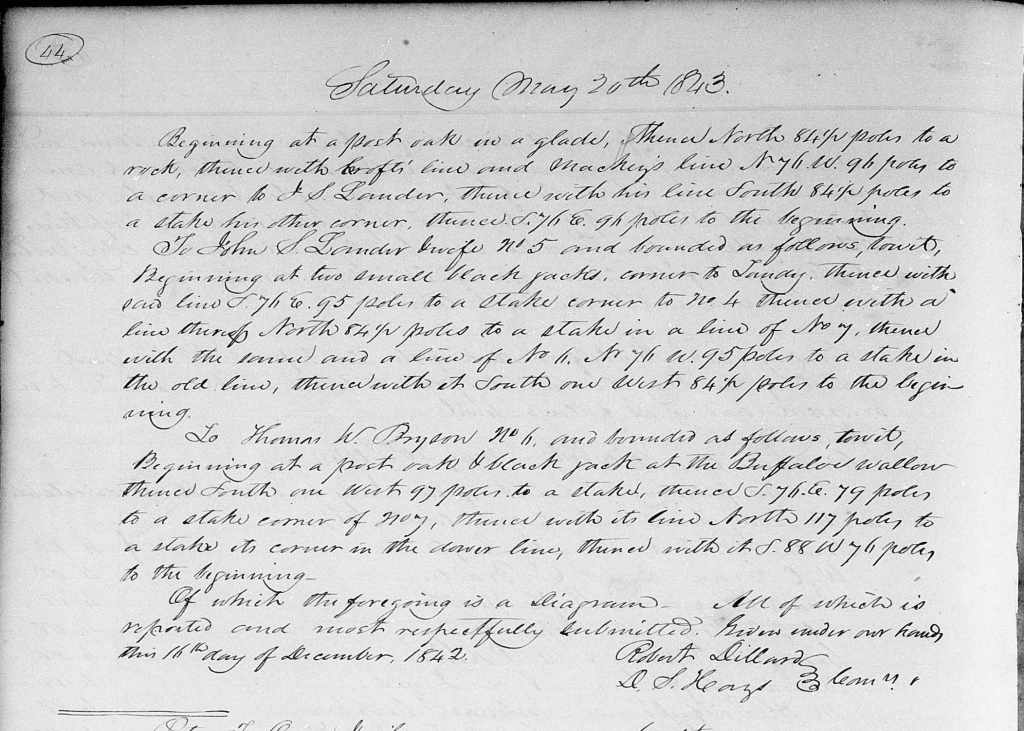 44
Saturday May 20th 1843.
Beginning at a post oak in a glade, thence North 84½ poles to a
rock, thence with Croft's line and Mackey's line N 76 W. 96 poles to
a corner to J S. Lander, thence with his line South 84½ poles to
a stake his other corner, thence S. 76 E. 96 poles to the beginning.
To John S. Lander & wife No 5 and bounded as follows, towit,
Beginning at two small black jacks, corner to Tandy, thence with
said line S. 76 E. 95 poles to a stake corner to No 4 thence with a
line thereof North 84½ poles to a stake in a line of No 7, thence
with the same and a line of No 6. N 76 W. 95 poles to a stake in
the old line, thence with it South one West 84½ poles to the begin
ning.
To Thomas W. Bryson No 6, and bounded as follows, towit,
Beginning at a post oak & black jack at the Buffaloe wallow
thence South one West 97 poles to a stake, thence S. 76. E. 79 poles
to a stake corner of No 7, thence with its line North 117 poles to
a stake its corner in the dower line, thence with it S. 88 W 76 poles
to the beginning—
Of which the foregoing is a Diagram— All of which is
reported and most respectfully submitted. Given under our hands
this 16th day of December, 1842.
Robert Dillard
D. S. Hays Comrs.